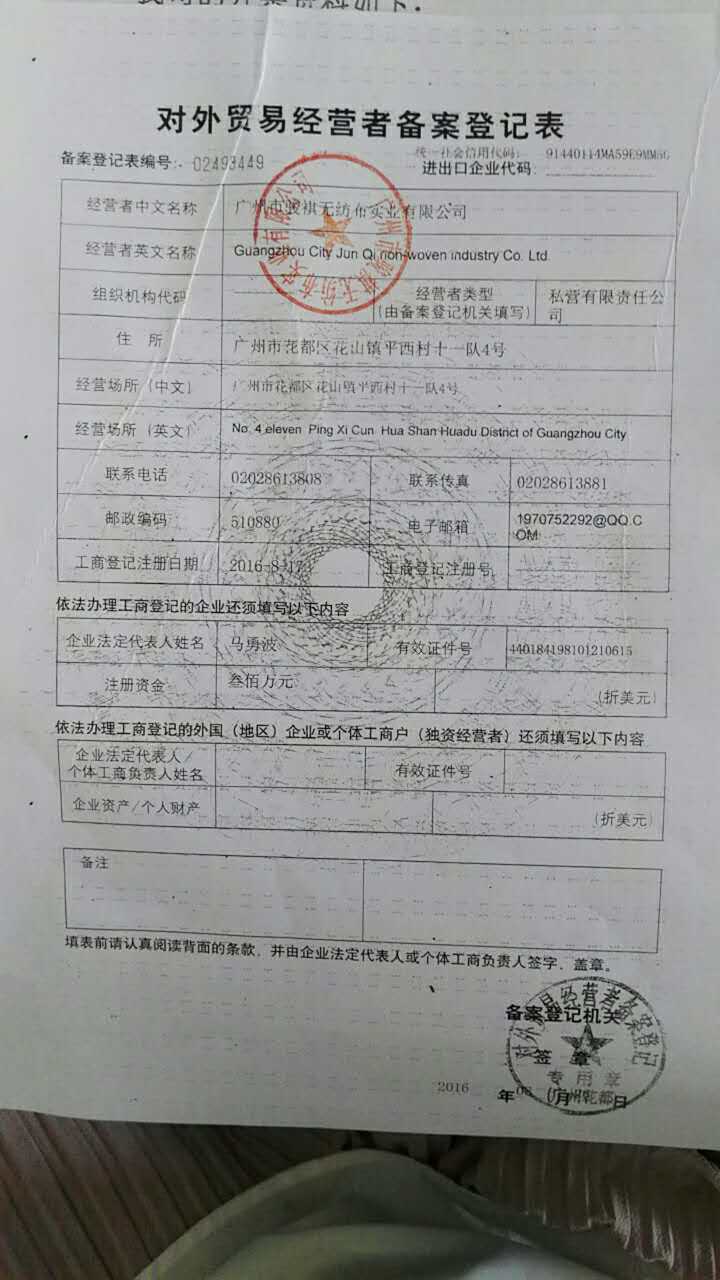 对外贸易经营者备案登记表
统一社会信用代码:
备案登记表编号: 02493449 进出口企业代码: 91440114MA59E9MM5G
经营者中文名称 广州市骏祺无纺布实业有限公司
经营者英文名称 Guangzhou City Jun Qi non-woven industry Co. Ltd.
组织机构代码 经营者类型 (由备案登记机关填写) 私营有限责任公
司
住 所 广州市花都区花山镇平西村十一队4号
经营场所（中文） 广州市花都区花山镇平西村十一队4号
经营场所（英文） No. 4 eleven Ping Xi Cun Hua Shan Huadu District of Guangzhou City
联系电话 02028613808 联系传真 02028613881
邮政编码 510880 电子邮箱 1970752292@QQ.C
OM
工商登记注册日期 2016-8-17 工商登记注册号
依法办理工商登记的企业还须填写以下内容
企业法定代表人姓名 马勇波 有效证件号 440184198101210615
注册资金 叁佰万元 (折美元)
依法办理工商登记的外国（地区）企业或个体工商户（独资经营者）还须填写以下内容
企业法定代表人/
个体工商负责人姓名 有效证件号
企业资产/个人财产 (折美元)
备注
填表前请认真阅读背面的条款，并由企业法定代表人或个体工商负责人签字、盖章。
对外贸易经营者备案登记
备案登记机关
签 章
专用章
(广州花都)
2016 年 月 日